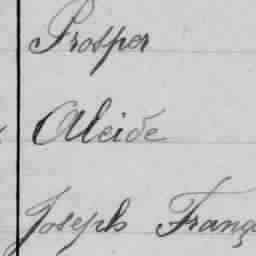 Prosper
Alcide
Joseph Franç